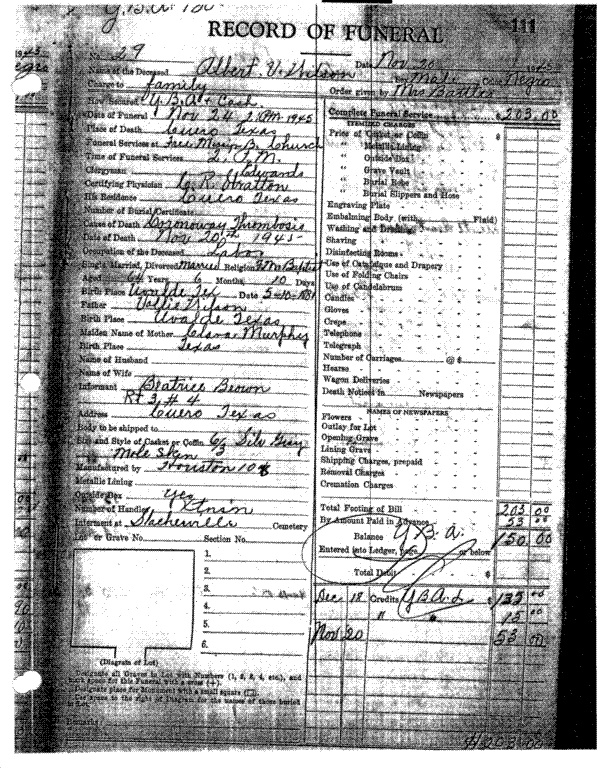 RECORD OF FUNERAL
111
No. 29
Date Nov 20 1945
Name of the Deceased Albert V. Wilson
Male Color Negro
Charge to family
Order given by Mrs Battles
How Secured Y.B.A. + Cash.
Date of Funeral Nov 24 2 PM 1945
Place of Death Cuero Texas
Funeral Services at Free Miss B. Church
Time of Funeral Services 2 P.M.
Clergyman Edwards
Certifying Physician R. Stratton
His Residence Cuero Texas
Number of Burial Certificate
Cause of Death Coronoway Thrombosis
Date of Death Nov 20th 1945
Occupation of the Deceased Labor
Single, Married, Divorced Married Religion Baptist
Aged 64 Years 6 Months, 10 Days
Birth Place Uvalde Tex Date 5-10-1881
Father Wilson
Birth Place Uvalde Texas
Maiden Name of Mother Clara Murphy
Birth Place Texas
Name of Husband
Name of Wife
Informant Beatrice Brown
Rt 3, # 4
Address Cuero Texas
Body to be shipped to
Size and Style of Casket or Coffin 6/3 Silv Gray
Mole Skin
Manufactured by Houston
Metallic Lining
Outside Box Yes
Number of Handles
Interment at Cemetery
Lot or Grave No. Section No.
1.
2.
3.
4.
5.
6.
(Diagram of Lot)
Designate all Graves in Lot with Numbers (1, 2, 3, 4, etc.), and
mark space for this Funeral with a cross (+).
Designate place for Monument with a small square
Use space to the right of Diagram for the names of those buried
in Lot.
Remarks:
Complete Funeral Service $ 203.00
ITEMIZED CHARGES
Price of Casket or Coffin $
" Metallic Lining
" Outside Box
" Grave Vault
" Burial Robe
" Burial Slippers and Hose
Engraving Plate
Embalming Body (with Fluid)
Washing and Dressing
Shaving
Disinfecting Rooms
Use of Catafalque and Drapery
Use of Folding Chairs
Use of Candelabrum
Candles
Gloves
Crepe
Telephone
Telegraph
Number of Carriages @ $
Hearse
Wagon Deliveries
Death Noticed in Newspapers
NAMES OF NEWSPAPERS
Flowers
Outlay for Lot
Opening Grave
Lining Grave
Shipping Charges, prepaid
Removal Charges
Cremation Charges
Total Footing of Bill 203 00
By Amount Paid in Advance 53 00
Balance Y.B.A. 150 00
Entered into Ledger, page or below
Total Debit $
Dec 18 Credits Y.B.A. $ 135 00
" 15 00
Nov 20 53 00